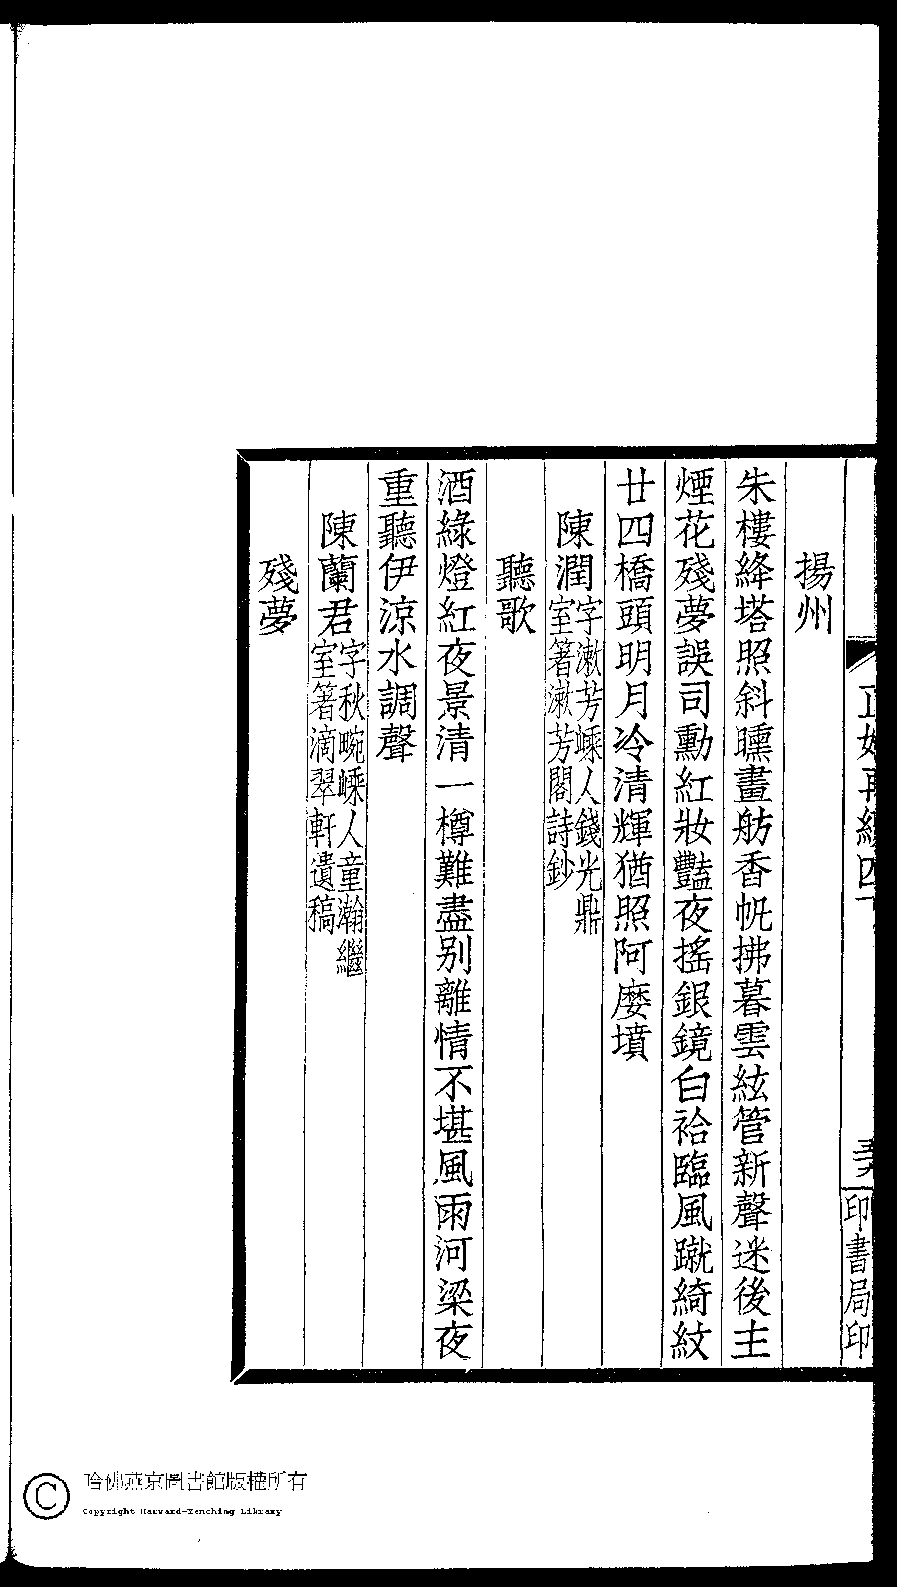 揚州
朱樓絳塔照斜曛畫舫香帆拂暮雲絃管新聲迷後主
煙花殘夢誤司勳紅妝豔夜搖銀鏡白袷臨風蹴綺紋
廿四橋頭明月冷清輝猶照阿㜷墳
陳潤字漱芳嵊人錢光鼎
室著漱芳閣詩鈔
聽歌
酒綠燈紅夜景清一樽難盡别離情不堪風雨河梁夜
重聽伊涼水調聲
陳蘭君字秋畹嵊人童瀚繼
室著滴翠軒遺稿
殘夢
印書局印
哈佛燕京圖書館版權所有
Copyright Harvard-Yenching Library